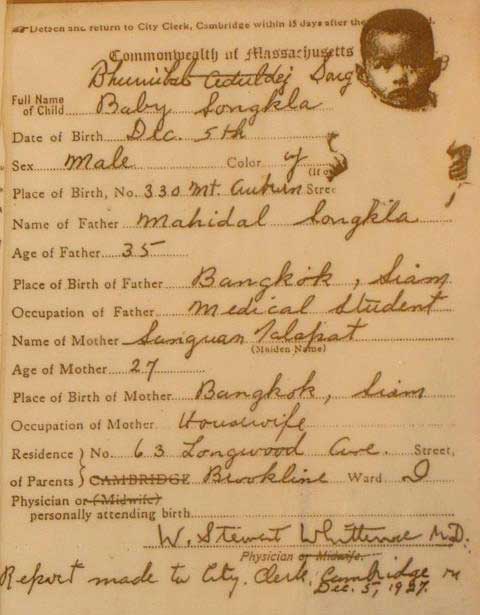 Detach and return to City Clerk, Cambridge within 15 days after the
Commonwealth of Massachusetts
Bhumibol Aduldej Song
Full Name of Child Baby Songkla
Date of Birth Dec. 5th
Sex Male Color y
(If o
Place of Birth, No. 330 Mt. Auburn Stree
Name of Father Mahidal Songkla
Age of Father 35
Place of Birth of Father Bangkok, Siam
Occupation of Father Medical Student
Name of Mother Sanguan Talapat
(Maiden Name)
Age of Mother 27
Place of Birth of Mother Bangkok, Siam
Occupation of Mother Housewife
Residence No. 63 Longwood Ave. Street,
of Parents CAMBRIDGE Brookline Ward
Physician or (Midwife)
personally attending birth
W. Stewart Whittemore M.D.
Physician or Midwife.
Report made to City Clerk, Cambridge
Dec. 5, 1927.